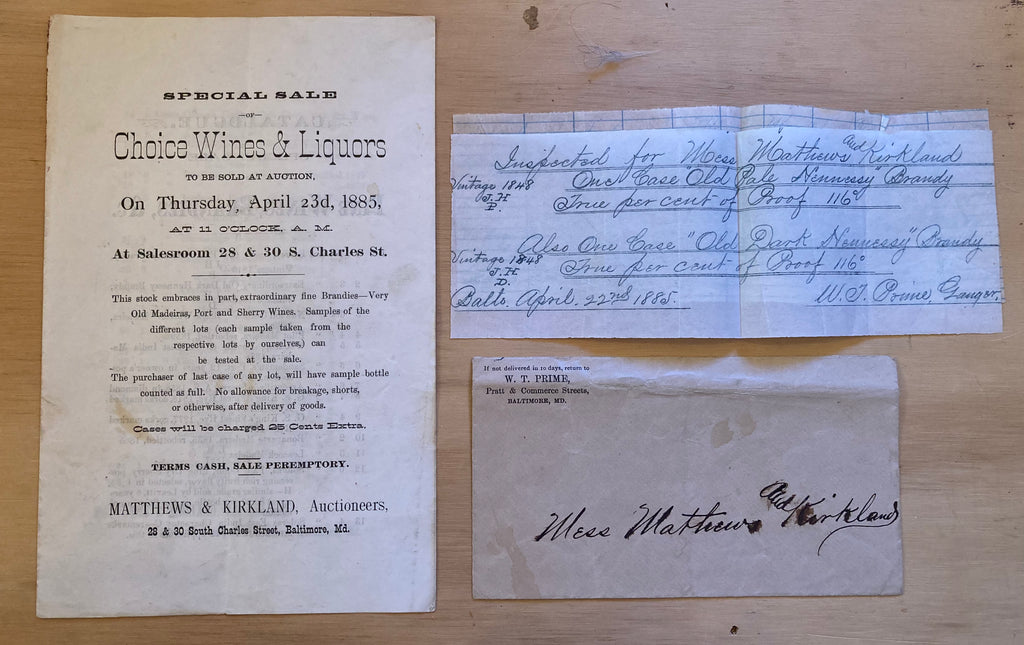 SPECIAL SALE
—OF—
Choice Wines & Liquors
TO BE SOLD AT AUCTION,
On Thursday, April 23d, 1885,
AT 11 O'CLOCK, A. M.
At Salesroom 28 & 30 S. Charles St.
This stock embraces in part, extraordinary fine Brandies—Very
Old Madeiras, Port and Sherry Wines. Samples of the
different lots (each sample taken from the
respective lots by ourselves,) can
be tested at the sale.
The purchaser of last case of any lot, will have sample bottle
counted as full. No allowance for breakage, shorts,
or otherwise, after delivery of goods.
Cases will be charged 25 Cents Extra.
TERMS CASH, SALE PEREMPTORY.
MATTHEWS & KIRKLAND, Auctioneers,
28 & 30 South Charles Street, Baltimore, Md.
Inspected for Mess Mathews and Kirkland
Vintage 1848 One Case "Old Pale Hennessy" Brandy
J. H
P. True per cent of Proof 116°
Also One Case "Old Dark Hennessy" Brandy
Vintage 1848 True per cent of Proof 116°
J. H.
D.
Balto. April. 22nd 1885. W. T. Prime, Gauger.
If not delivered in 10 days, return to
W. T. PRIME,
Pratt & Commerce Streets,
BALTIMORE, MD.
Mess Mathews and Kirkland